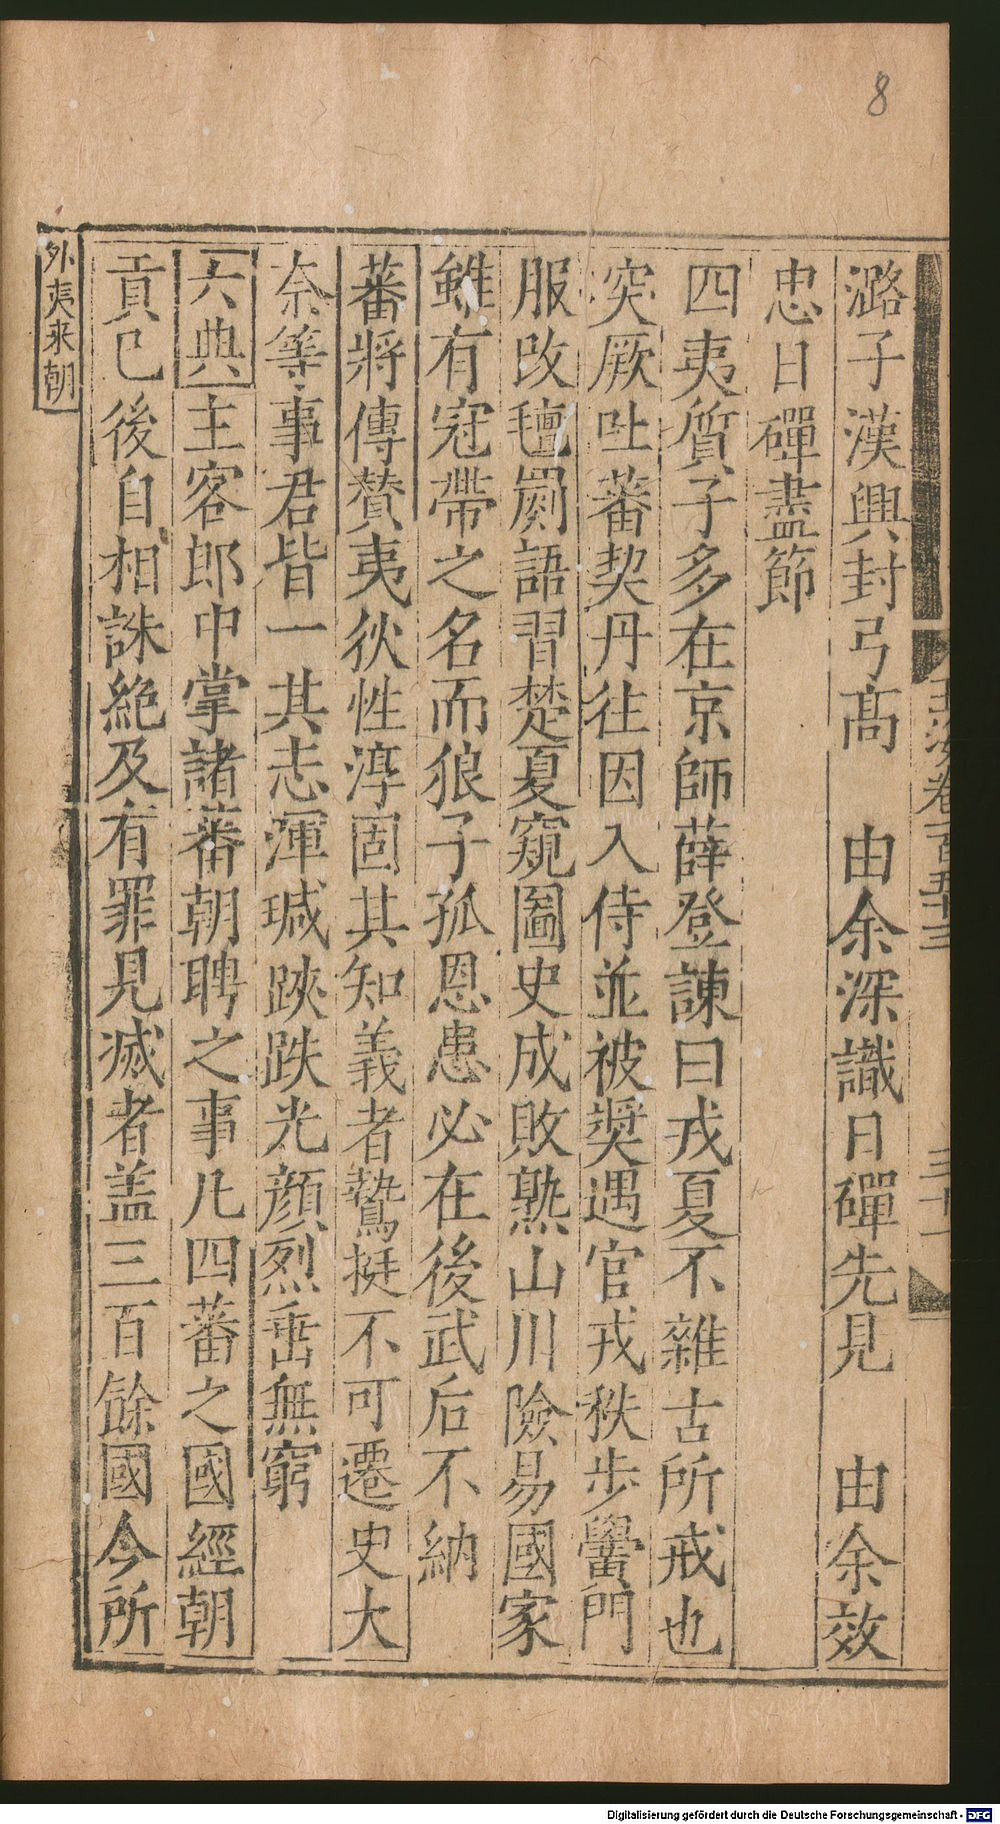 8
玉海卷一百五十三
三十一
潞子漢興封弓高　由余深識日磾先見　由余效
忠日磾盡節
四夷質子多在京師薛登諫曰戎夏不雜古所戒也
突厥吐蕃契丹往因入侍並被奨遇官戎秩步黌門
服改氊罽語習楚夏窺圖史成敗熟山川險易國家
雖有冠帶之名而狼子孤恩患必在後武后不納
蕃將傳贊夷狄性淳固其知義者鷙挺不可遷史大
奈等事君皆一其志渾瑊䟎跌光顔烈垂無窮
六典主客郎中掌諸蕃朝聘之事凡四蕃之國經朝
貢已後自相誅絶及有罪見滅者盖三百餘國今所
外夷来朝
Digitalisierung gefördert durch die Deutsche Forschungsgemeinschaft - DFG